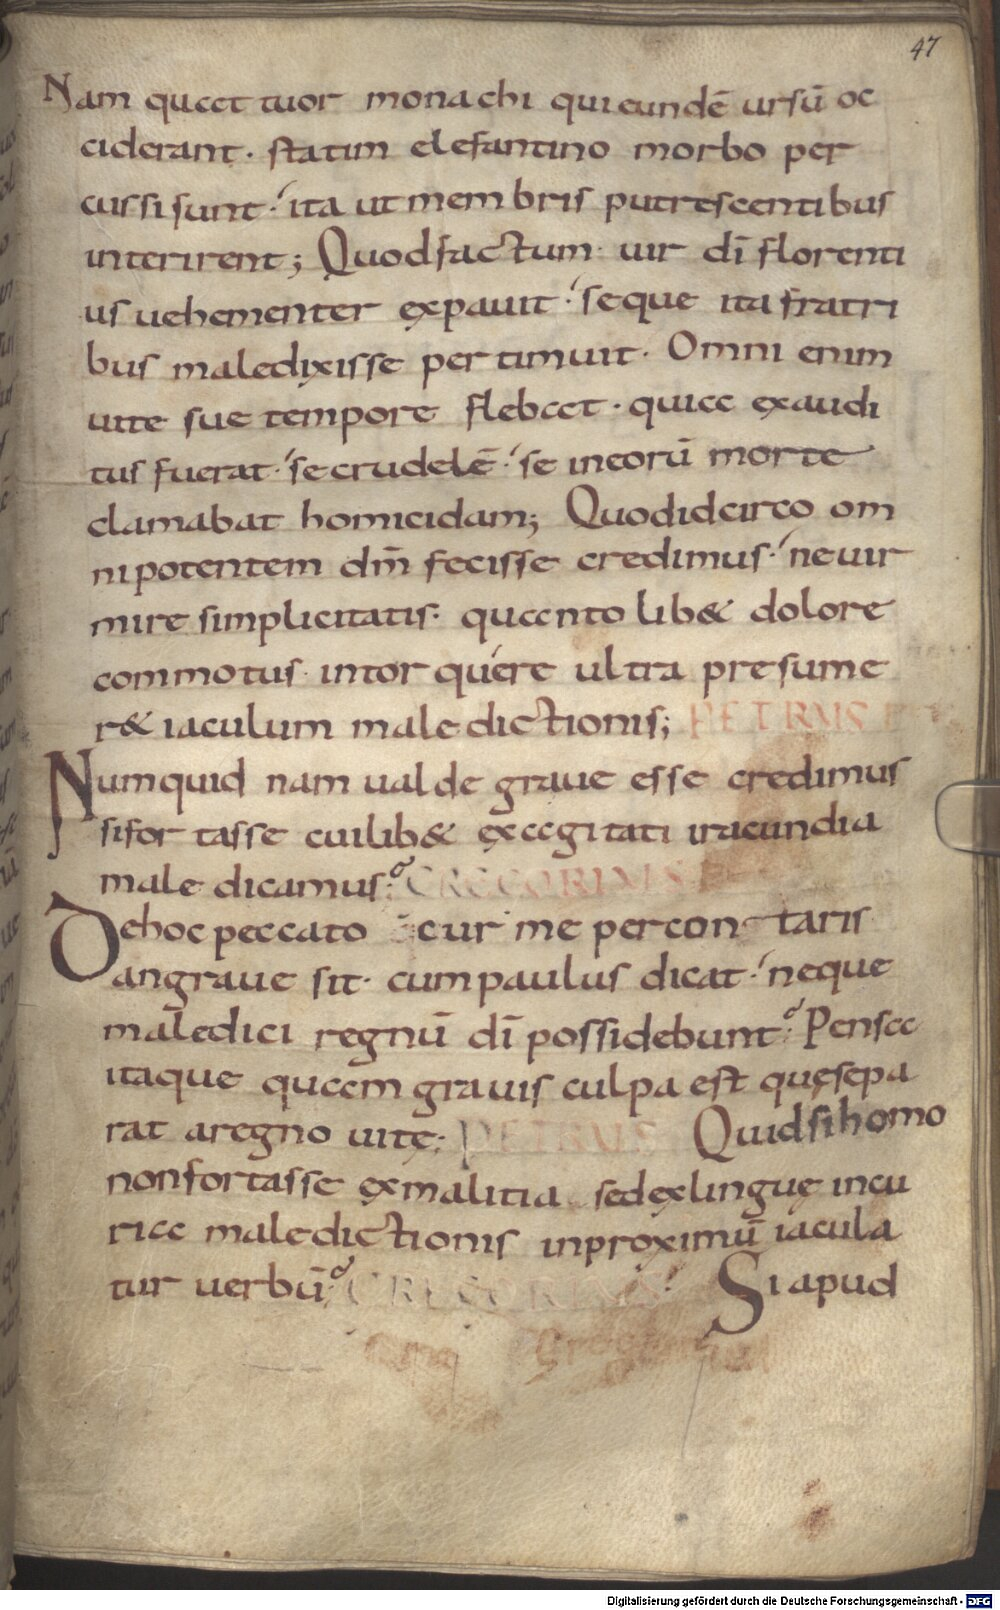 47
Nam quattuor monachi qui eundē ursū oc
ciderant. statim elefantino morbo per
cussi sunt. ita ut membris putrescentibus
interirent; Quod factum uir dī florenti
us uehementer expauit. seque ita fratri
bus maledixisse pertimuit. Omni enim
uite sue tempore flebat. quia exaudi
tus fuerat. se crudelē. se in eorū morte
clamabat homicidam; Quod idcirco om
nipotentem dm̄ fecisse credimus. ne uir
mire simplicitatis. quanto lib& dolore
commotus. intorquere ultra presume
r& iaculum maledictionis; PETRUS
Numquid nam ualde graue esse credimus
si fortasse cuilib& exagitati iracundia
male dicamus? GREGORIUS
De hoc peccato cur me percontaris
an graue sit. cum paulus dicat. neque
maledici regnū dī possidebunt? Pensa
itaque quam grauis culpa est quę sepa
rat a regno uitę; PETRUS Quid si homo
non fortasse ex malitia sed ex linguę incu
ria maledictionis in proximū iacula
tur uerbū? GREGORIUS Si apud
Digitalisierung gefördert durch die Deutsche Forschungsgemeinschaft - DFG